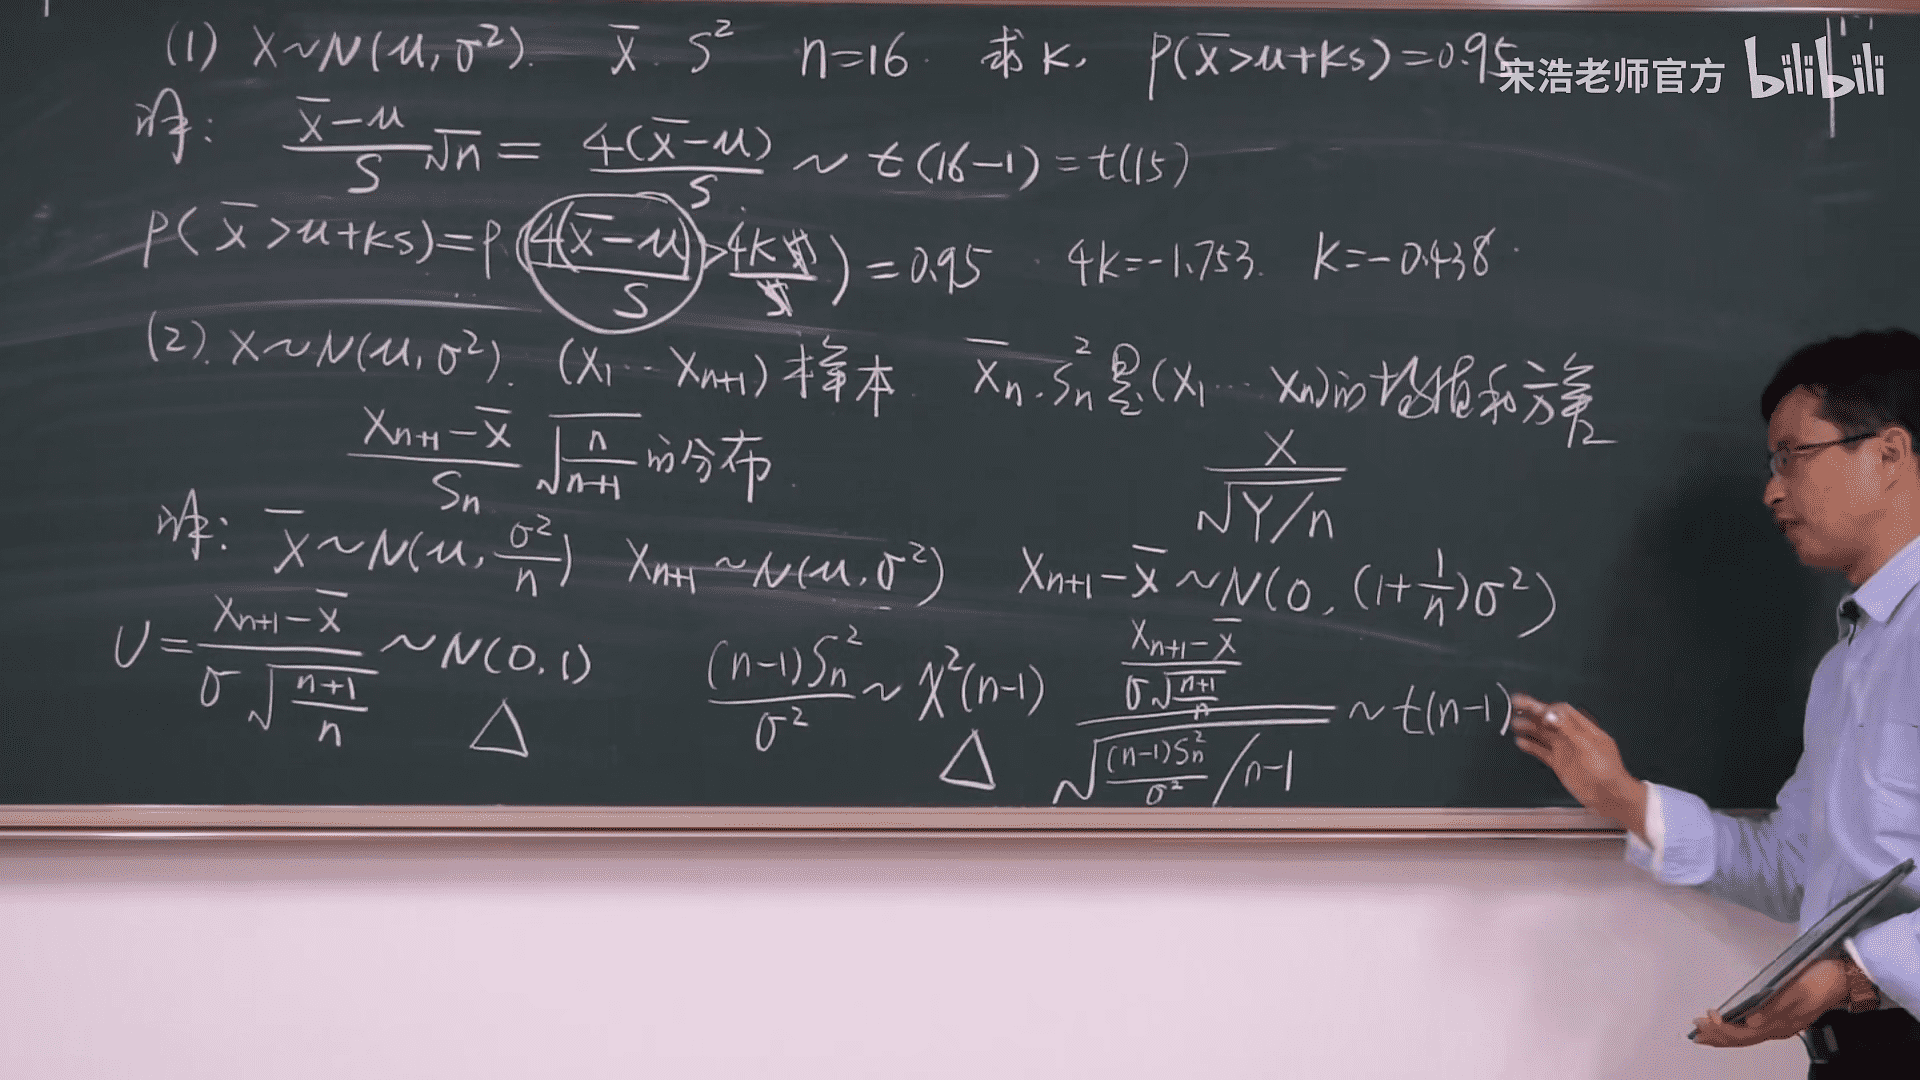 (1) X~N(μ,σ²). X̄. S² n=16. 求K, P(X̄>μ+KS)=0.95
宋浩老师官方 bilibili
解: (X̄-μ)/S √n = 4(X̄-μ)/S ~ t(16-1)=t(15)
P(X̄>μ+KS)=P(4(X̄-μ)/S > 4KS/S)=0.95 4K=-1.753. K=-0.438
(2). X~N(μ,σ²). (X₁…Xₙ₊₁)样本 X̄ₙ.Sₙ²是(X₁…Xₙ)的均值和方差
(Xₙ₊₁-X̄)/Sₙ √(n/(n+1)) 的分布.
X/√(Y/n)
解: X̄~N(μ,σ²/n) Xₙ₊₁~N(μ,σ²) Xₙ₊₁-X̄~N(0,(1+1/n)σ²)
U=(Xₙ₊₁-X̄)/(σ√((n+1)/n)) ~N(0,1) (n-1)Sₙ²/σ² ~ χ²(n-1) ((Xₙ₊₁-X̄)/(σ√((n+1)/n)))/√((n-1)Sₙ²/σ² /n-1) ~t(n-1)